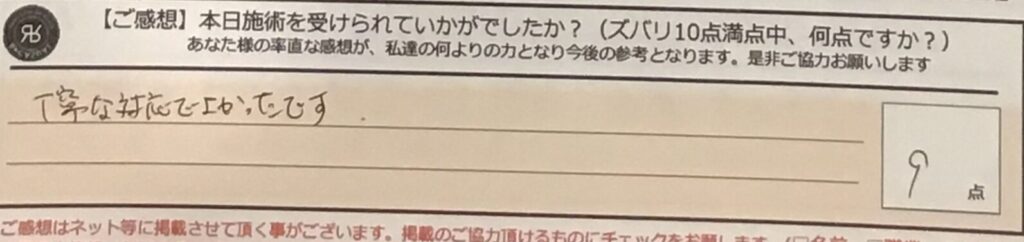 【ご感想】本日施術を受けられていかがでしたか？（ズバリ10点満点中、何点ですか？）
あなた様の率直な感想が、私達の何よりの力となり今後の参考となります。是非ご協力お願いします
丁寧な対応で良かったです.
9点
ご感想はネット等に掲載させて頂く事がございます。掲載のご協力頂けるものにチェックをお願いします